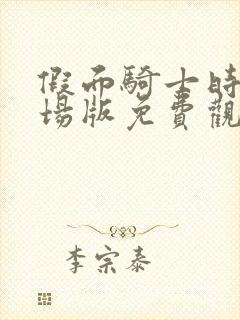 假面騎士時
場版免費觀
李宗泰